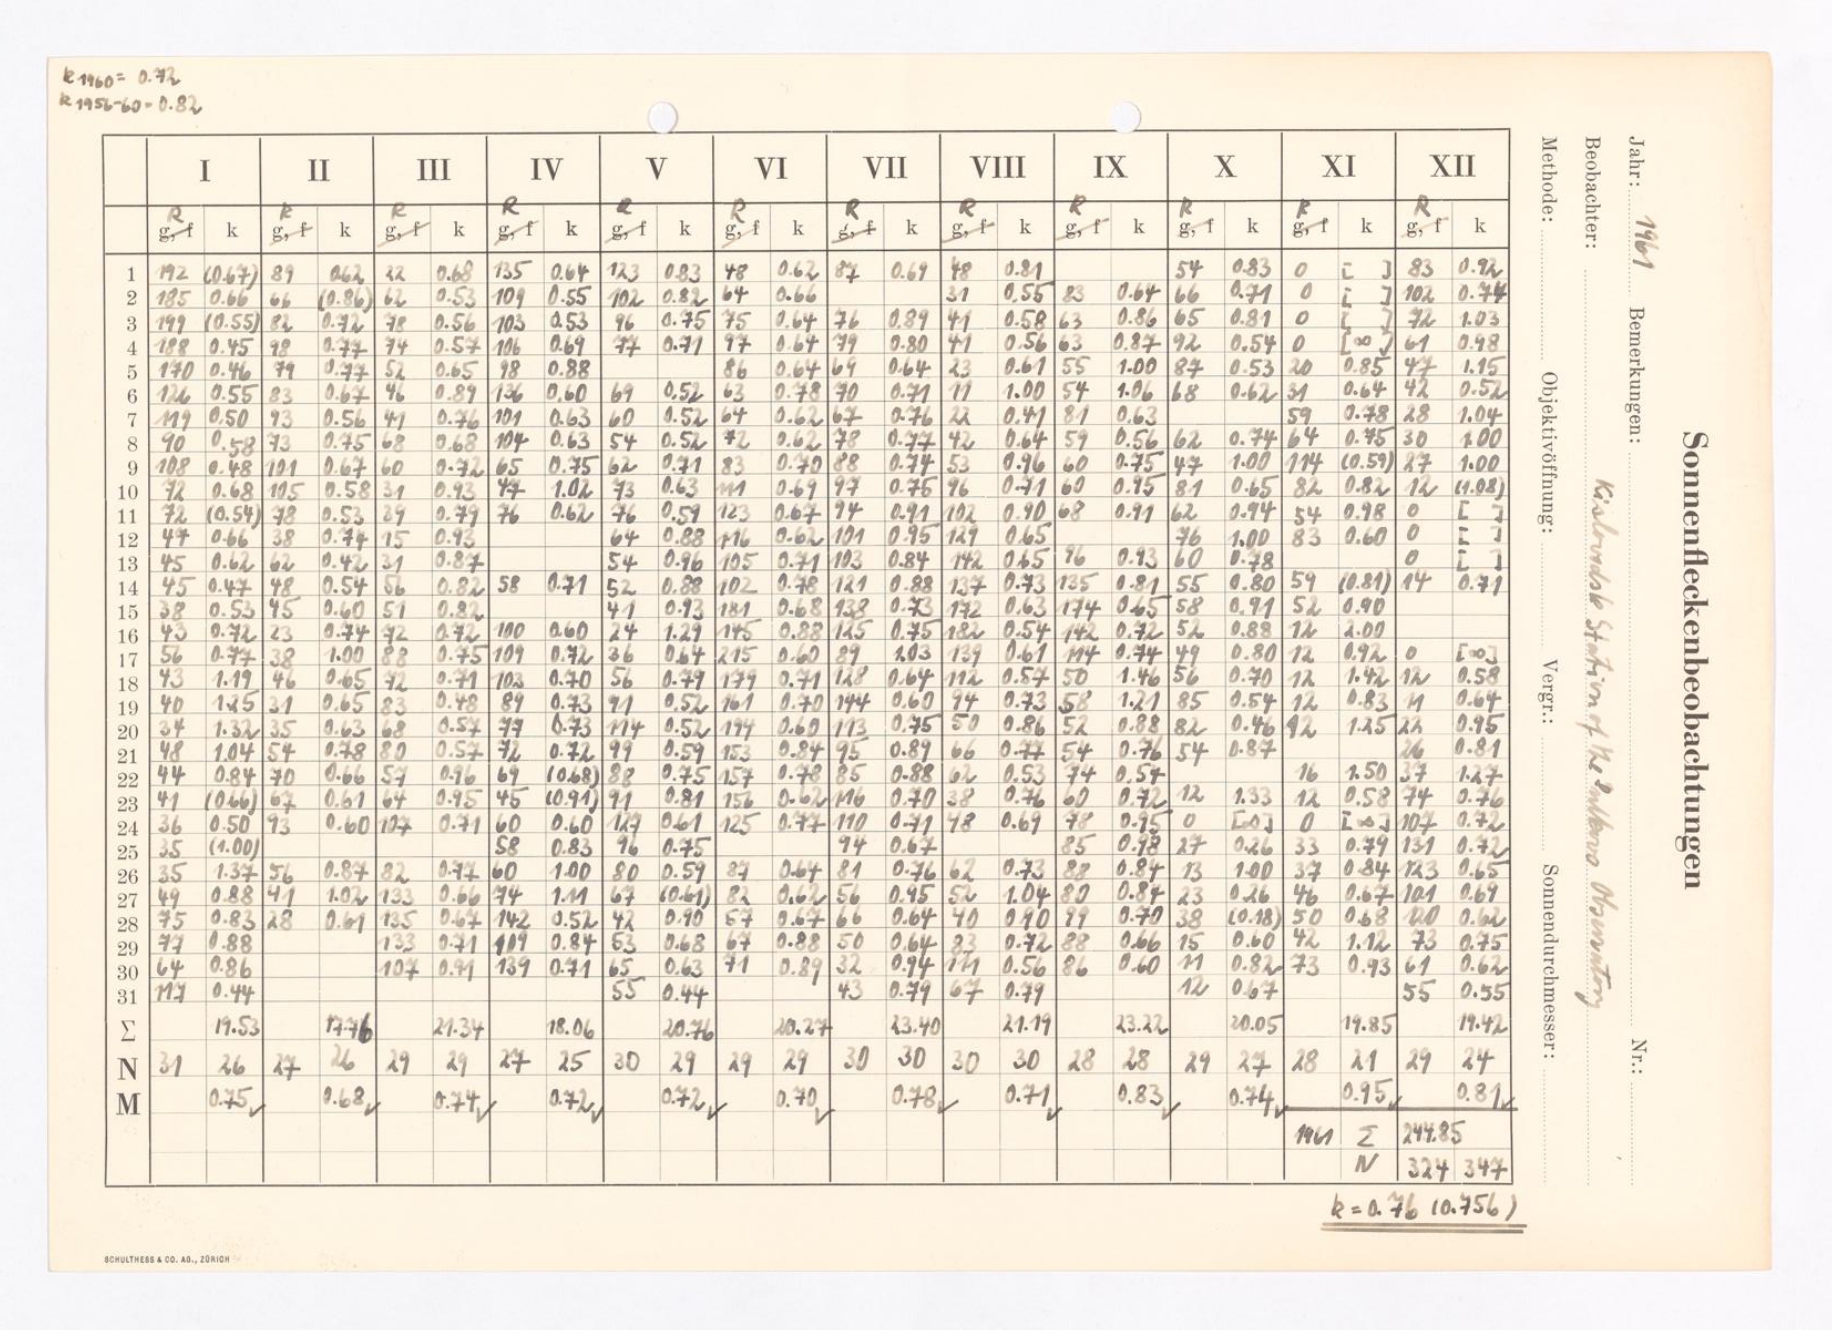 k 1960 = 0.72
k 1956-60 = 0.82
Sonnenfleckenbeobachtungen
Jahr: 1961 Bemerkungen: Nr.:
Beobachter: Kislovodsk Station of the Pulkovo Observatory
Methode: Objektivöffnung: Vergr.: Sonnendurchmesser:
I II III IV V VI VII VIII IX X XI XII
R R R R R R R R R R R R
g, f k g, f k g, f k g, f k g, f k g, f k g, f k g, f k g, f k g, f k g, f k g, f k
1 192 (0.67) 89 0.62 22 0.68 135 0.64 123 0.83 48 0.62 87 0.69 48 0.81 54 0.83 0 [ ] 83 0.92
2 185 0.66 66 (0.86) 62 0.53 109 0.55 102 0.82 64 0.66 31 0.55 83 0.64 66 0.71 0 [ ] 102 0.74
3 199 (0.55) 82 0.72 78 0.56 103 0.53 96 0.75 75 0.64 76 0.89 41 0.58 63 0.86 65 0.81 0 [ ] 72 1.03
4 188 0.45 98 0.77 74 0.57 106 0.69 77 0.71 97 0.64 79 0.80 41 0.56 63 0.87 92 0.54 0 [∞] 61 0.98
5 170 0.46 79 0.77 52 0.65 98 0.88 86 0.64 69 0.64 23 0.61 55 1.00 87 0.53 20 0.85 47 1.15
6 126 0.55 83 0.67 46 0.89 136 0.60 69 0.52 63 0.78 70 0.71 11 1.00 54 1.06 68 0.62 31 0.64 42 0.52
7 119 0.50 93 0.56 41 0.76 101 0.63 60 0.52 64 0.62 67 0.76 22 0.41 81 0.63 59 0.78 28 1.04
8 90 0.58 73 0.75 68 0.68 104 0.63 54 0.52 72 0.62 78 0.77 42 0.64 59 0.56 62 0.74 64 0.75 30 1.00
9 108 0.48 101 0.67 60 0.72 65 0.75 62 0.71 83 0.70 88 0.74 53 0.96 60 0.75 47 1.00 114 (0.59) 27 1.00
10 72 0.68 105 0.58 31 0.93 47 1.02 73 0.63 111 0.69 97 0.75 96 0.71 60 0.95 81 0.65 82 0.82 12 (1.08)
11 72 (0.54) 78 0.53 39 0.79 76 0.62 76 0.59 123 0.67 94 0.91 102 0.90 68 0.91 62 0.94 54 0.98 0 [ ]
12 47 0.66 38 0.74 15 0.93 64 0.88 116 0.62 101 0.95 129 0.65 76 1.00 83 0.60 0 [ ]
13 45 0.62 62 0.42 31 0.87 54 0.96 105 0.71 103 0.84 142 0.65 96 0.93 60 0.78 0 [ ]
14 45 0.47 48 0.54 56 0.82 58 0.71 52 0.88 102 0.78 121 0.88 137 0.73 135 0.81 55 0.80 59 (0.81) 14 0.71
15 38 0.53 45 0.60 51 0.82 41 0.93 181 0.68 138 0.73 172 0.63 174 0.65 58 0.91 52 0.90
16 43 0.72 23 0.74 72 0.72 100 0.60 24 1.29 145 0.88 125 0.75 182 0.54 142 0.72 52 0.88 12 2.00
17 56 0.77 38 1.00 88 0.75 109 0.72 36 0.64 215 0.60 89 1.03 139 0.61 114 0.74 49 0.80 12 0.92 0 [∞]
18 43 1.19 46 0.65 72 0.71 103 0.70 56 0.79 179 0.71 128 0.64 112 0.57 50 1.46 56 0.70 12 1.42 12 0.58
19 40 1.25 31 0.65 83 0.48 89 0.73 91 0.52 161 0.70 144 0.60 94 0.73 58 1.21 85 0.54 12 0.83 11 0.64
20 34 1.32 35 0.63 68 0.57 77 0.73 114 0.52 194 0.60 113 0.75 50 0.86 52 0.88 82 0.46 12 1.25 22 0.95
21 48 1.04 54 0.78 80 0.57 72 0.72 99 0.59 153 0.84 95 0.89 66 0.77 54 0.76 54 0.87 26 0.81
22 44 0.84 70 0.66 57 0.96 69 (0.68) 88 0.75 157 0.78 85 0.88 62 0.53 74 0.54 16 1.50 37 1.27
23 41 (0.66) 67 0.61 64 0.95 45 (0.91) 91 0.81 156 0.62 116 0.70 38 0.76 60 0.72 12 1.33 12 0.58 74 0.76
24 36 0.50 93 0.60 107 0.71 60 0.60 127 0.61 125 0.77 110 0.71 48 0.69 78 0.95 0 [∞] 0 [∞] 107 0.72
25 35 (1.00) 58 0.83 96 0.75 94 0.67 85 0.98 27 0.26 33 0.79 131 0.72
26 35 1.37 56 0.87 82 0.77 60 1.00 80 0.59 87 0.64 81 0.76 62 0.73 88 0.84 13 1.00 37 0.84 123 0.65
27 49 0.88 41 1.02 133 0.66 74 1.11 67 (0.61) 82 0.62 56 0.95 52 1.04 80 0.84 23 0.26 46 0.67 101 0.69
28 75 0.83 28 0.61 135 0.67 142 0.52 42 0.90 57 0.67 66 0.64 40 0.90 99 0.70 38 (0.18) 50 0.68 120 0.62
29 77 0.88 133 0.71 109 0.84 53 0.68 67 0.88 50 0.64 83 0.72 88 0.66 15 0.60 42 1.12 73 0.75
30 64 0.86 107 0.91 139 0.71 65 0.63 71 0.89 32 0.94 111 0.56 86 0.60 11 0.82 73 0.93 61 0.62
31 117 0.44 55 0.44 43 0.79 67 0.79 12 0.67 55 0.55
Σ 19.53 17.76 21.34 18.06 20.76 20.27 23.40 21.19 23.22 20.05 19.85 19.42
N 31 26 27 26 29 29 27 25 30 29 29 29 30 30 30 30 28 28 29 27 28 21 29 24
M 0.75 0.68 0.74 0.72 0.72 0.70 0.78 0.71 0.83 0.74 0.95 0.81
1961 Σ 244.85
N 324 347
k = 0.76 (0.756)
SCHULTHESS & CO. AG., ZÜRICH